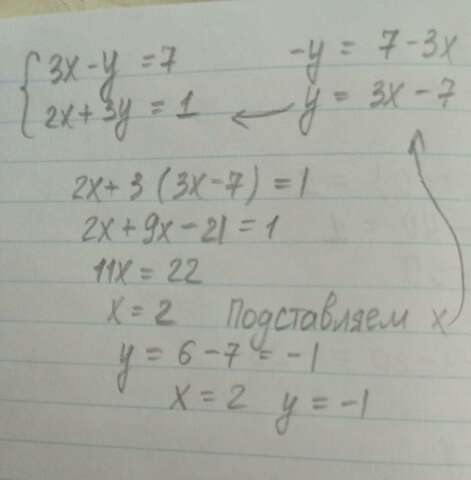 3x-y = 7
2x+3y = 1
-y = 7-3x
y = 3x-7
2x+3(3x-7) = 1
2x+9x-21 = 1
11x = 22
x = 2 Подставляем x
y = 6-7 = -1
x = 2 y = -1